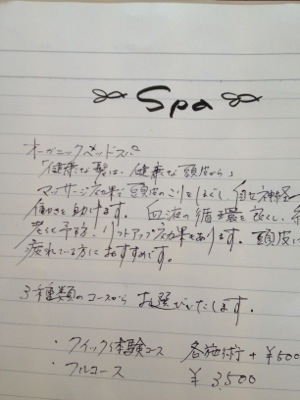 Spa
オーガニックヘッドスパ
「健康な髪は、健康な頭皮から」
マッサージ効果で頭皮のこりをほぐし、自律神経
働きを助けます。血液の循環を良くし、
老化予防、リフトアップ効果もあります。頭皮に
疲れている方におすすめです。
3種類のコースから お選びいたします。
・クイック体験コース 各施術 + ¥500
・フルコース ¥3,500